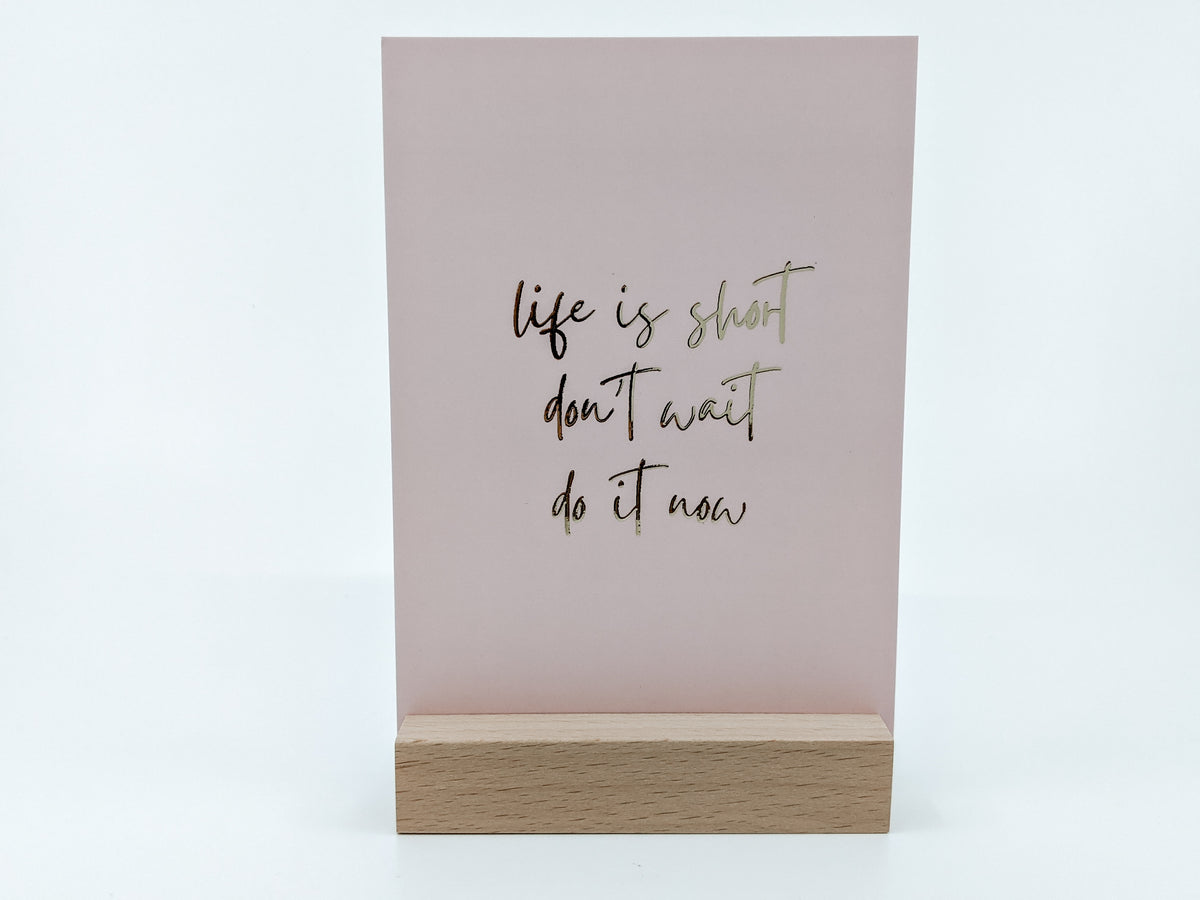 life is short
don't wait
do it now